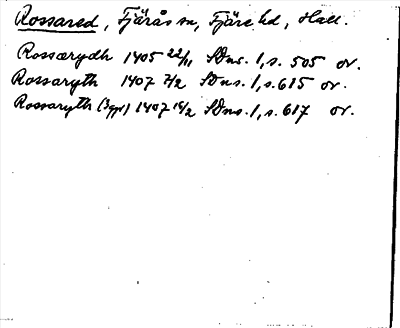 Rossared, Fjärås sn, Fjäre hd, Hall.
Rossærydh 1405 22/11 SDns. 1, s. 505 or.
Rossaryth 1407 7/2 SDns. 1, s. 615 or.
Rossaryth (3 ggr) 1407 15/2 SDns. 1, s. 617 or.